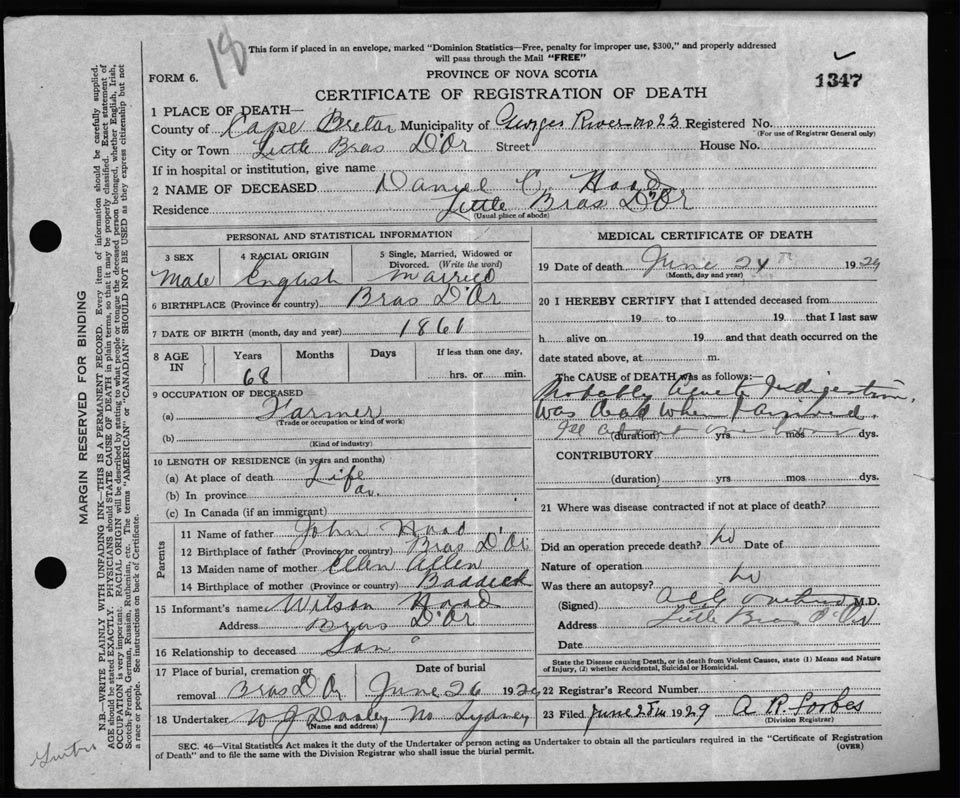 18
This form if placed in an envelope, marked "Dominion Statistics—Free, penalty for improper use, $300," and properly addressed
will pass through the Mail "FREE"
FORM 6.
PROVINCE OF NOVA SCOTIA
1347
CERTIFICATE OF REGISTRATION OF DEATH
1 PLACE OF DEATH—
County of Cape Breton Municipality of Georges River no 23 Registered No.
(For use of Registrar General only)
City or Town Little Bras D'Or Street House No.
If in hospital or institution, give name
2 NAME OF DECEASED Daniel C. Hood
Residence Little Bras D'Or
(Usual place of abode)
PERSONAL AND STATISTICAL INFORMATION
3 SEX 4 RACIAL ORIGIN 5 Single, Married, Widowed or
Divorced. (Write the word)
Male English Married
6 BIRTHPLACE (Province or country) Bras D'Or
7 DATE OF BIRTH (month, day and year) 1861
8 AGE IN Years Months Days If less than one day,
68 hrs. or min.
9 OCCUPATION OF DECEASED
(a) Farmer
(Trade or occupation or kind of work)
(b)
(Kind of industry)
10 LENGTH OF RESIDENCE (in years and months)
(a) At place of death Life
(b) In province
(c) In Canada (if an immigrant)
Parents
11 Name of father John Hood
12 Birthplace of father (Province or country) Bras D'Or
13 Maiden name of mother Ellen Allen
14 Birthplace of mother (Province or country) Baddeck
15 Informant's name Wilson Hood
Address Bras D'Or
16 Relationship to deceased Son
17 Place of burial, cremation or Date of burial
removal Bras D'Or June 26 1929
18 Undertaker W J Dooley No Sydney
(Name and address)
MEDICAL CERTIFICATE OF DEATH
19 Date of death June 24th 1929
(Month, day and year)
20 I HEREBY CERTIFY that I attended deceased from
19 to 19 that I last saw
h alive on 19 and that death occurred on the
date stated above, at m.
The CAUSE of DEATH was as follows:—
Probably Acute Indigestion,
was dead when I arrived.
Ill about one hour
(duration) yrs mos dys.
CONTRIBUTORY
(duration) yrs mos dys.
21 Where was disease contracted if not at place of death?
Did an operation precede death? no Date of
Nature of operation
Was there an autopsy? no
(Signed) M.D.
Address Little Bras D'Or
Date
State the Disease causing Death, or in death from Violent Causes, state (1) Means and Nature
of Injury, (2) whether Accidental, Suicidal or Homicidal.
22 Registrar's Record Number
23 Filed June 25th 1929 A R Forbes
(Division Registrar)
SEC. 46—Vital Statistics Act makes it the duty of the Undertaker or person acting as Undertaker to obtain all the particulars required in the "Certificate of Registration
of Death" and to file the same with the Division Registrar who shall issue the burial permit.
(OVER)
MARGIN RESERVED FOR BINDING
N.B.—WRITE PLAINLY WITH UNFADING INK—THIS IS A PERMANENT RECORD. Every item of information should be carefully supplied.
AGE should be stated EXACTLY. PHYSICIANS should STATE CAUSE OF DEATH in plain terms, so that it may be properly classified. Exact statement of
OCCUPATION is very important. RACIAL ORIGIN will be described by stating to what people or tongue the deceased person belonged, whether English, Irish,
Scotch, French, German, Russian, Ruthenian, etc. The terms "AMERICAN" or "CANADIAN" SHOULD NOT BE USED as they express citizenship but not
a race or people. See instructions on back of Certificate.